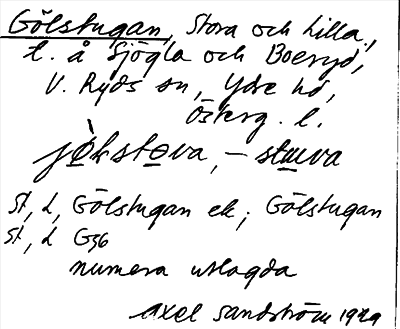 Gölstugan, Stora och Lilla,
t. å Sjögla och Boeryd,
V. Ryds sn, Ydre hd,
Österg. l.
jø̀kstova, – stuva
St, L, Gölstugan ek; Gölstugan
St, L G36
numera utlagda
Axel Sandström 1929